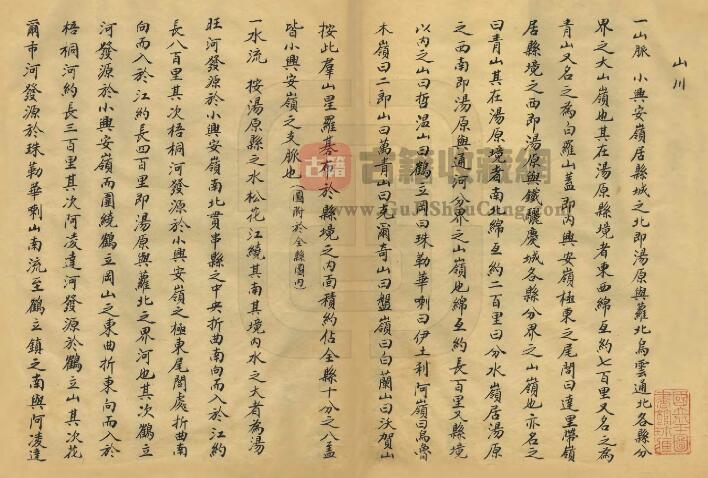 山川
一山脈 小興安嶺居縣城之北即湯原與蘿北烏雲通北各縣分
界之大山嶺也其在湯原縣境者東西綿亙約七百里又名之為
青山又名之為白羅山蓋即內興安嶺極東之尾閭曰達里帶嶺
居縣境之西即湯原與鐵驪慶城各縣分界之山嶺也亦名之
曰青山其在湯原境者南北綿亙約二百里曰分水嶺居湯原
之西南即湯原與通河分界之山嶺也綿亙約長百里又縣境
以內之山曰哲温山曰鶴立岡曰珠勒華喇曰伊土利阿嶺曰烏魯
木嶺曰二郎山曰萬青山曰克爾奇山曰盤嶺曰白蘭山曰汏賀山
按此羣山星羅碁布於縣境之內面積約佔全縣十分之八蓋
皆小興安嶺之支脈也(圖附於全縣圖內
一水流 按湯原縣之水松花江繞其南其境內水之大者為湯
旺河發源於小興安嶺南北貫串縣之中央折曲南向而入於江約
長八百里其次梧桐河發源於小興安嶺之極東尾閭處折曲南
向而入於江約長四百里即湯原與蘿北之界河也其次鶴立
河發源於小興安嶺而圍繞鶴立岡山之東曲折東向而入於
梧桐河約長三百里其次阿凌達河發源於鶴立山其次花
爾布河發源於珠勒華喇山南流至鶴立鎮之南與阿凌達
古籍
古籍收藏網
www.GuJiShouCang.com